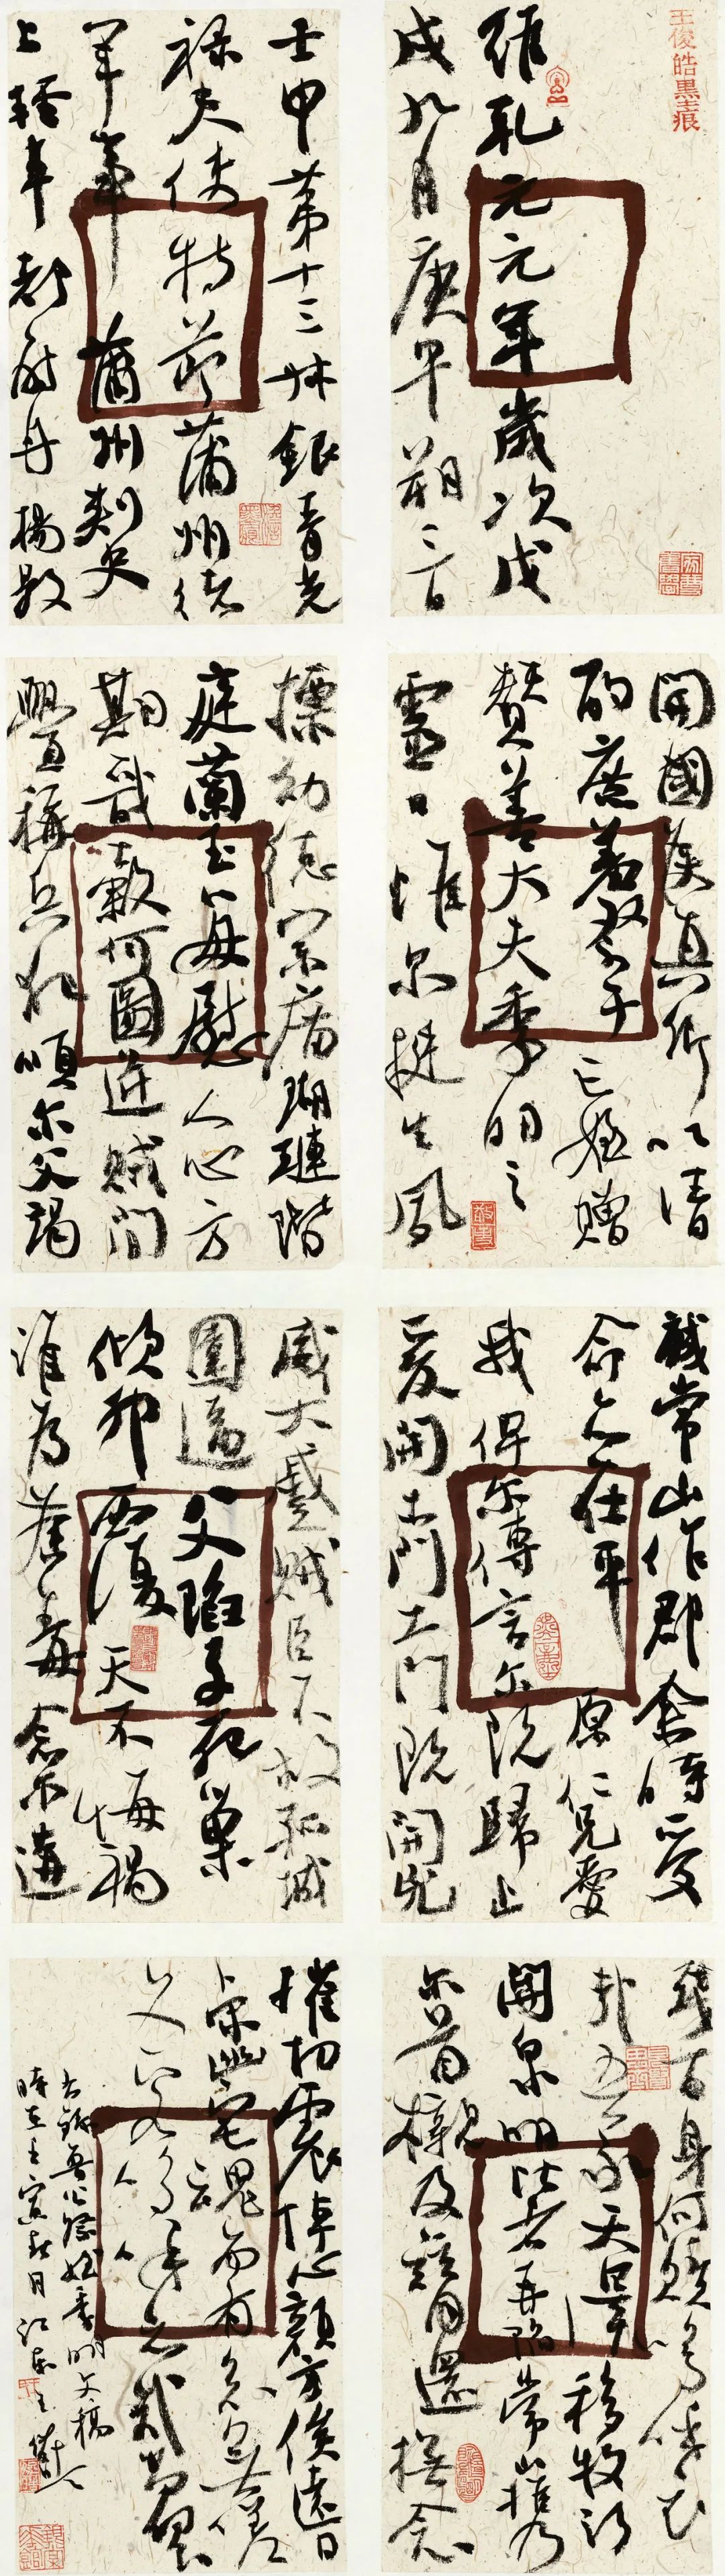 王俊皓墨痕
維乾元元年歲次戊
戌九月庚午朔三日
壬申第十三叔銀青光
祿夫使持節蒲州諸
軍事蒲州刺史
上輕車都尉丹楊縣
開國侯真卿以清
酌庶羞祭于亡姪贈
贊善大夫季明之
靈曰惟爾挺生夙
標幼德宗廟瑚璉階
庭蘭玉每慰人心方
期戩穀何圖逆賊間
釁稱兵犯順爾父竭
誠常山作郡余時受
命亦在平原仁兄愛
我俾爾傳言爾既歸止
爰開土門土門既開兇
威大蹙賊臣不救孤城
圍逼父陷子死巢
傾卵覆天不悔禍
誰為荼毒念爾遘
殘百身何贖嗚呼哀
哉吾承天澤移牧河
關泉明比者再陷常山攜
爾首櫬及茲同還撫念
摧切震悼心顏方俟遠日
卜爾幽宅魂而有知無嗟
久客嗚呼哀哉尚饗
右錄魯公祭姪季明文稿
時在壬寅秋月